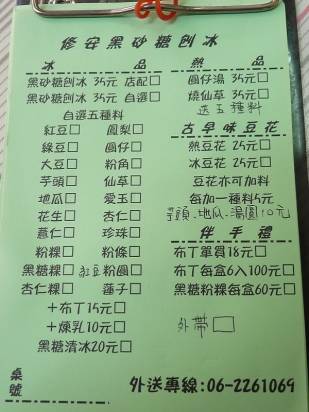 修安黑砂糖刨冰
冰 品
黑砂糖刨冰 35元 店配□
黑砂糖刨冰 35元 自選□
自選五種料
紅豆□ 鳳梨□
綠豆□ 圓仔□
大豆□ 粉角□
芋頭□ 仙草□
地瓜□ 愛玉□
花生□ 杏仁□
薏仁□ 珍珠□
粉粿□ 粉條□
黑糖粿□ 紅豆粉圓□
杏仁粿□ 蓮子□
+布丁15元□
+煉乳10元□
黑糖清冰20元□
熱 品
圓仔湯 35元□
燒仙草 35元□
送五種料
古早味豆花
熱豆花 25元□
冰豆花 25元□
豆花亦可加料
每加一種料5元
芋頭、地瓜、湯圓10元
伴手禮
布丁單買18元□
布丁每盒6入100元□
黑糖粉粿每盒60元□
外帶□
桌號
外送專線:06-2261069